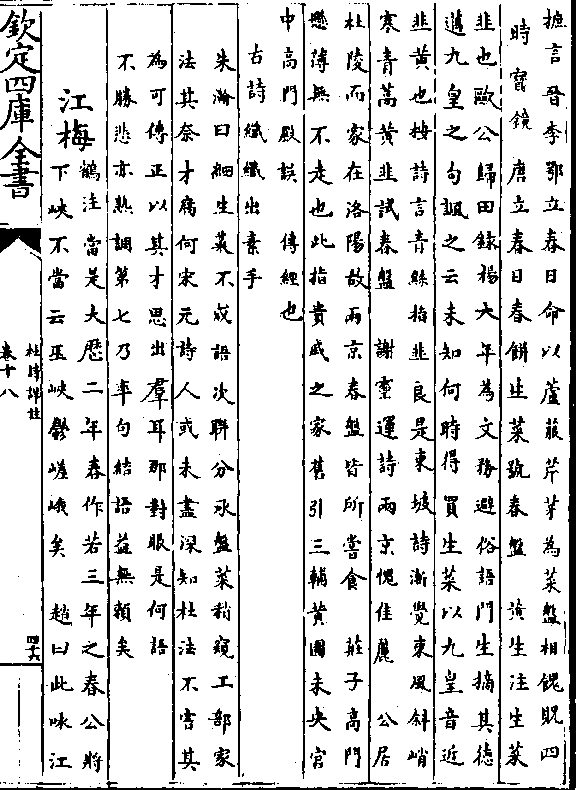 摭言晉李鄂立春日命以蘆菔芹芽為菜盤相餽貺四
時寶鏡唐立春日春餅生菜號春盤 黄生注生菜
韭也歐公歸田録楊大年為文務避俗語門生摘其德
邁九皇之句諷之云未知何時得買生菜以九皇音近
韭黄也按詩言青絲指韭良是東坡詩漸覺東風斜峭
寒青蒿黄韭試春盤 謝靈運詩兩京愧佳麗 公居
杜陵而家在洛陽故兩京春盤皆所嘗食 莊子高門
懸薄無不走也此指貴戚之家舊引三輔黄圖未央宫
中高門殿誤 傳經也
古詩纖纖出素手
朱瀚曰細生菜不成語次聯分承盤菜稍窺工部家
法其奈才腐何宋元詩人或未盡深知杜法不害其
為可傳正以其才思出羣耳那對眼是何語
不勝悲亦熟調第七乃率句結語益無頼矣
江梅
鶴注當是大歴二年春作若三年之春公將
下峽不當云巫峽鬱嵯峨矣 趙曰此咏江
欽定四庫全書
杜詩詳註
卷十八
四十六